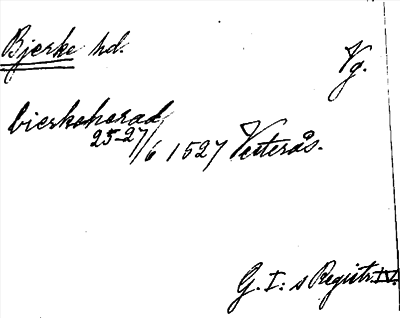 Bjerke hd. Vg.
bierkeherad
25-27/6 1527 Vesterås.
G. I: s Registr. IV.